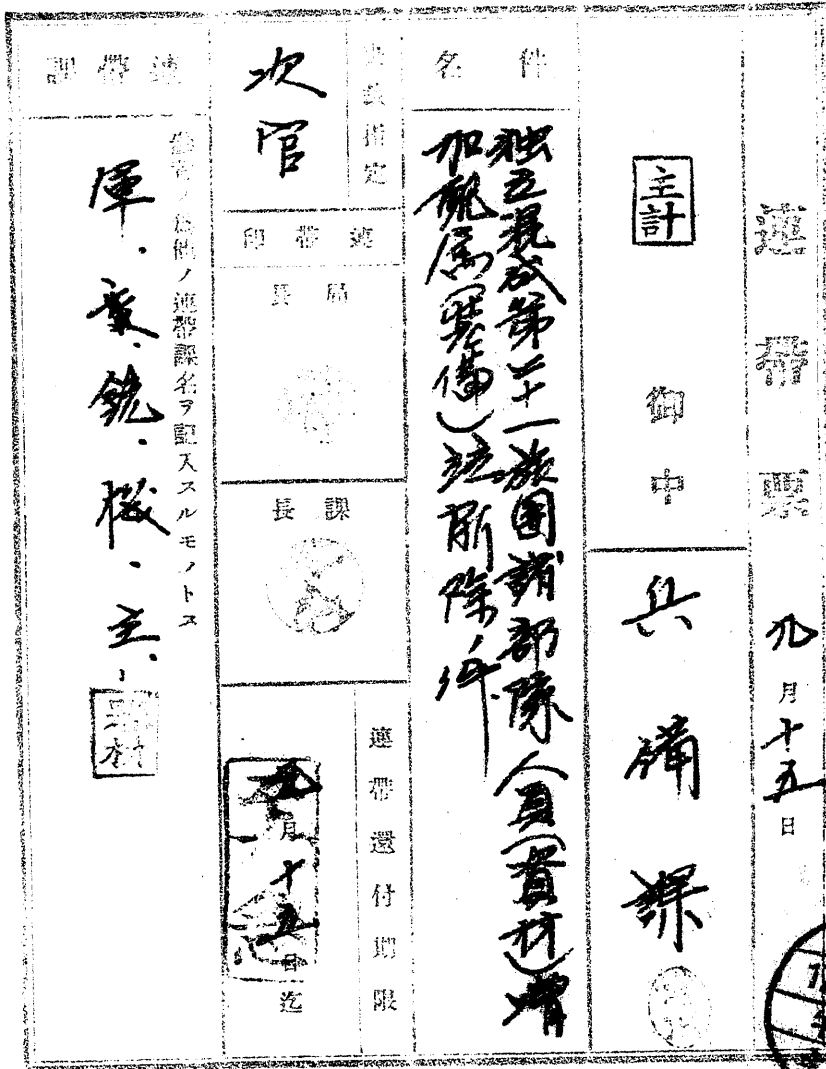 連帯票
九月十五日
主計
御中
兵備課
件名
独立混成第二十一旅団諸部隊人員(資材)増
加配属(整備)竝削除ノ件
決裁指定
次官
連帯印
局長
課長
連帯還付期限
九月十五日迄
連帯課
備考ノ為他ノ連帯課名ヲ記入スルモノトス
軍、衣、銃、機、主、
器材